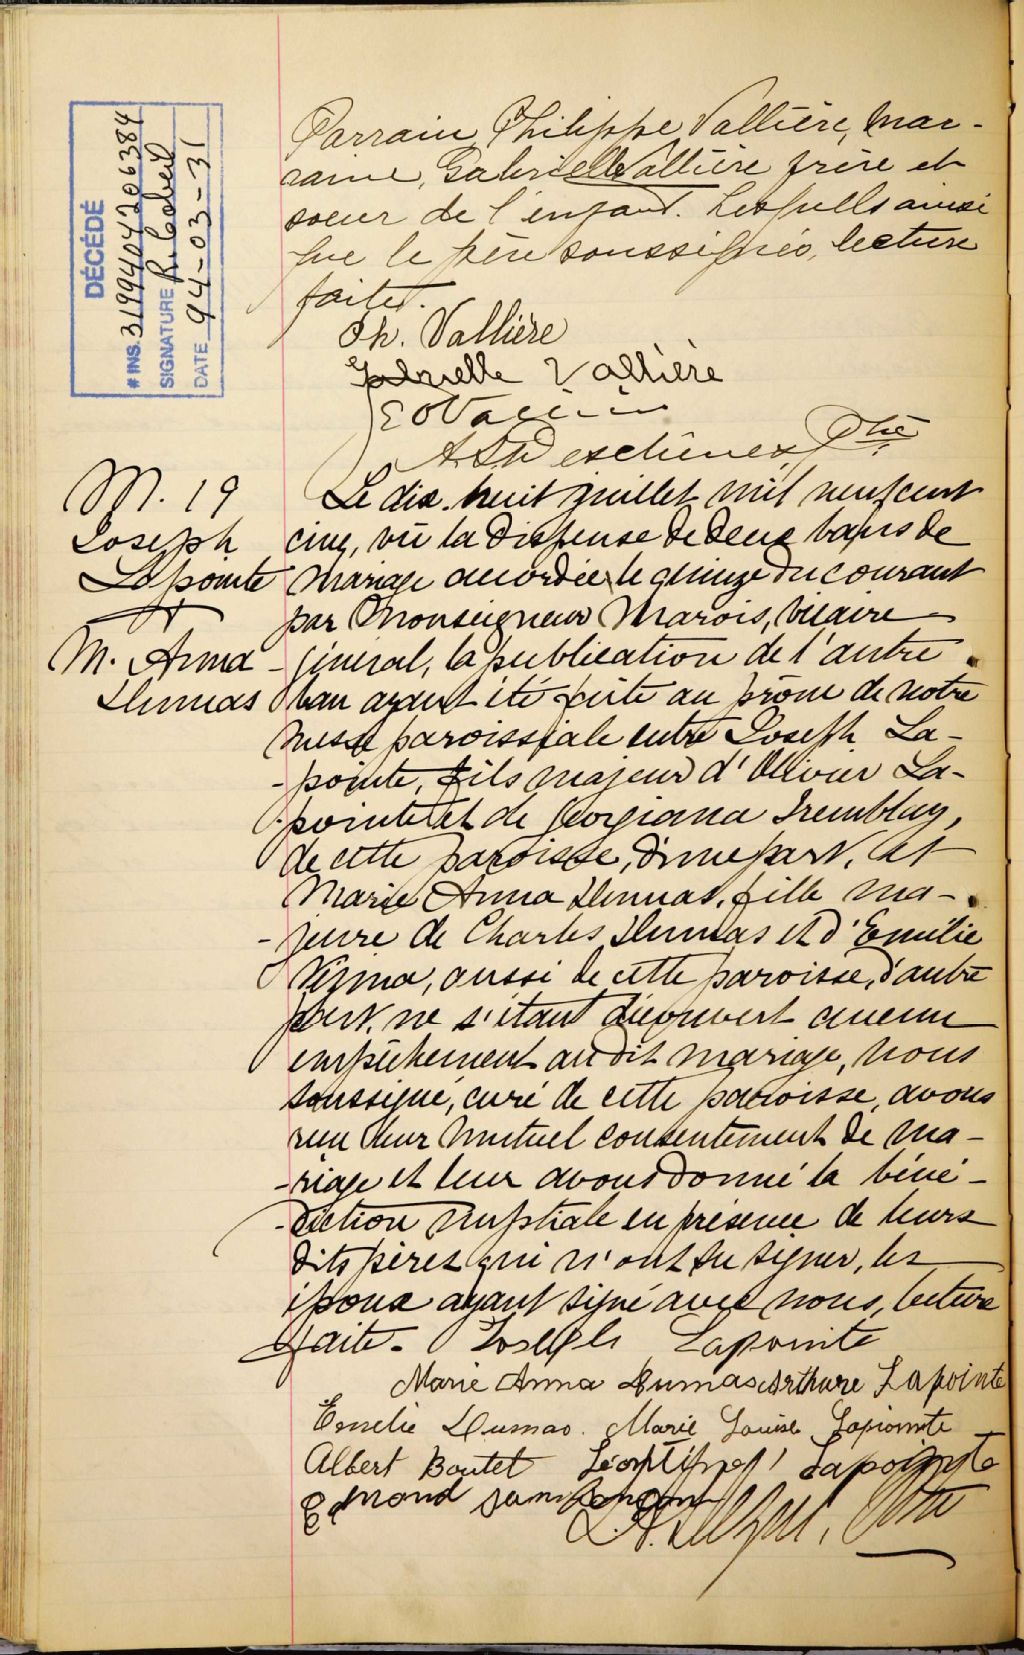 DÉCÉDÉ
# INS. 3199404206384
SIGNATURE R. Cobeil
DATE 94-03-31
Parrain Philippe Vallière, mar-
raine, Gabrielle Vallière frère et
soeur de l'enfant. Lesquels ainsi
que le père soussignés, lecture
faite.
Ph. Vallière
Gabrielle Vallière
Deschênes Ptre
M. 19
Joseph
Lapointe
&
M. Anna
Dumas
Le dix-huit juillet mil neuf cent
cinq, vu la dispense de deux bans de
mariage accordée le quinze du courant
par Monseigneur Marois, vicaire
général, la publication de l'autre
ban ayant été faite au prône de notre
messe paroissiale entre Joseph La-
-pointe, fils majeur d'Olivier La-
pointe et de Georgiana Tremblay,
de cette paroisse, d'une part, et
Marie Anna Dumas, fille ma-
-jeure de Charles Dumas et d'Emilie
aussi de cette paroisse, d'autre
part, ne s'étant découvert aucun
empêchement au dit mariage, nous
soussigné, curé de cette paroisse, avons
reçu leur mutuel consentement de ma-
-riage et leur avons donné la béné-
-diction nuptiale en présence de leurs
dits pères qui n'ont su signer, les
époux ayant signé avec nous, lecture
faite. Joseph Lapointe
Marie Anna Dumas Arthure Lapointe
Emelie Dumas. Marie Louise Lapointe
Albert Boutet Lapointe
Edmond
Ptre